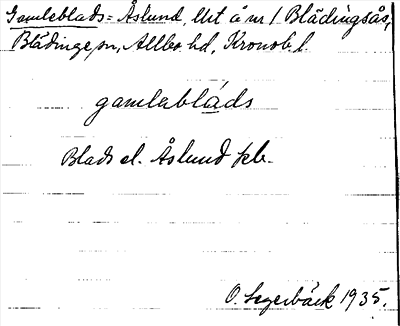 Gamleblads = Åslund, lht å nr 1 Blädingsås,
Blädinge sn, Allbo hd, Kronob. l.
gamlablads
Blads el. Åslund pln.
O. Segerbäck 1935.